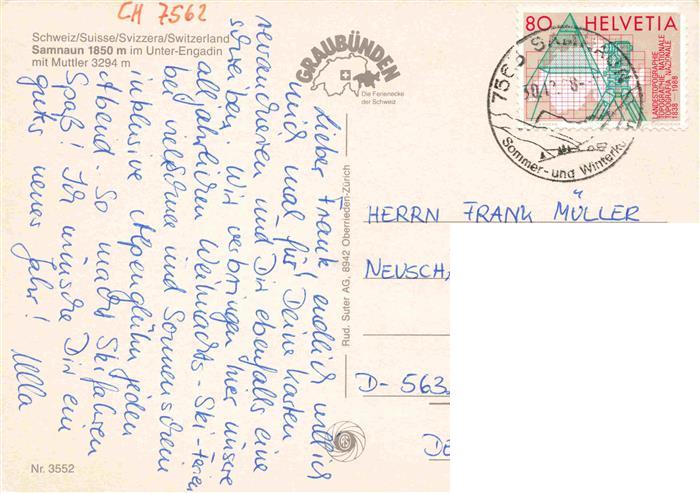 CH 7562
Schweiz/Suisse/Svizzera/Switzerland
Samnaun 1850 m im Unter-Engadin
mit Muttler 3294 m
GRAUBÜNDEN
Die Ferienecke
der Schweiz
80 HELVETIA
LANDESTOPOGRAPHIE
TOPOGRAPHIE NATIONALE
TOPOGRAFIA NAZIONALE
1838 – 1988
7563 SAMNAUN
Sommer- und Winterku
Lieber Frank! Endlich will ich
mich mal für Deine Karten
revanchieren und Dir ebenfalls eine
schreiben. Wir verbringen hier unsere
alljährlichen Weihnachts-Ski-Ferien
bei viel Schnee und Sonnenschein
inklusive Alpenglühn jeden
Abend. So macht Skifahren
Spaß! Ich wünsche Dir ein
gutes neues Jahr!
Ulla
Rud. Suter AG, 8942 Oberrieden-Zürich
HERRN FRANK MÜLLER
NEUSCH
D-563
DE
Nr. 3552